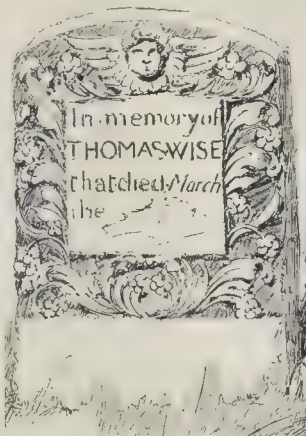 In memory of
THOMAS WISE
that died March
the